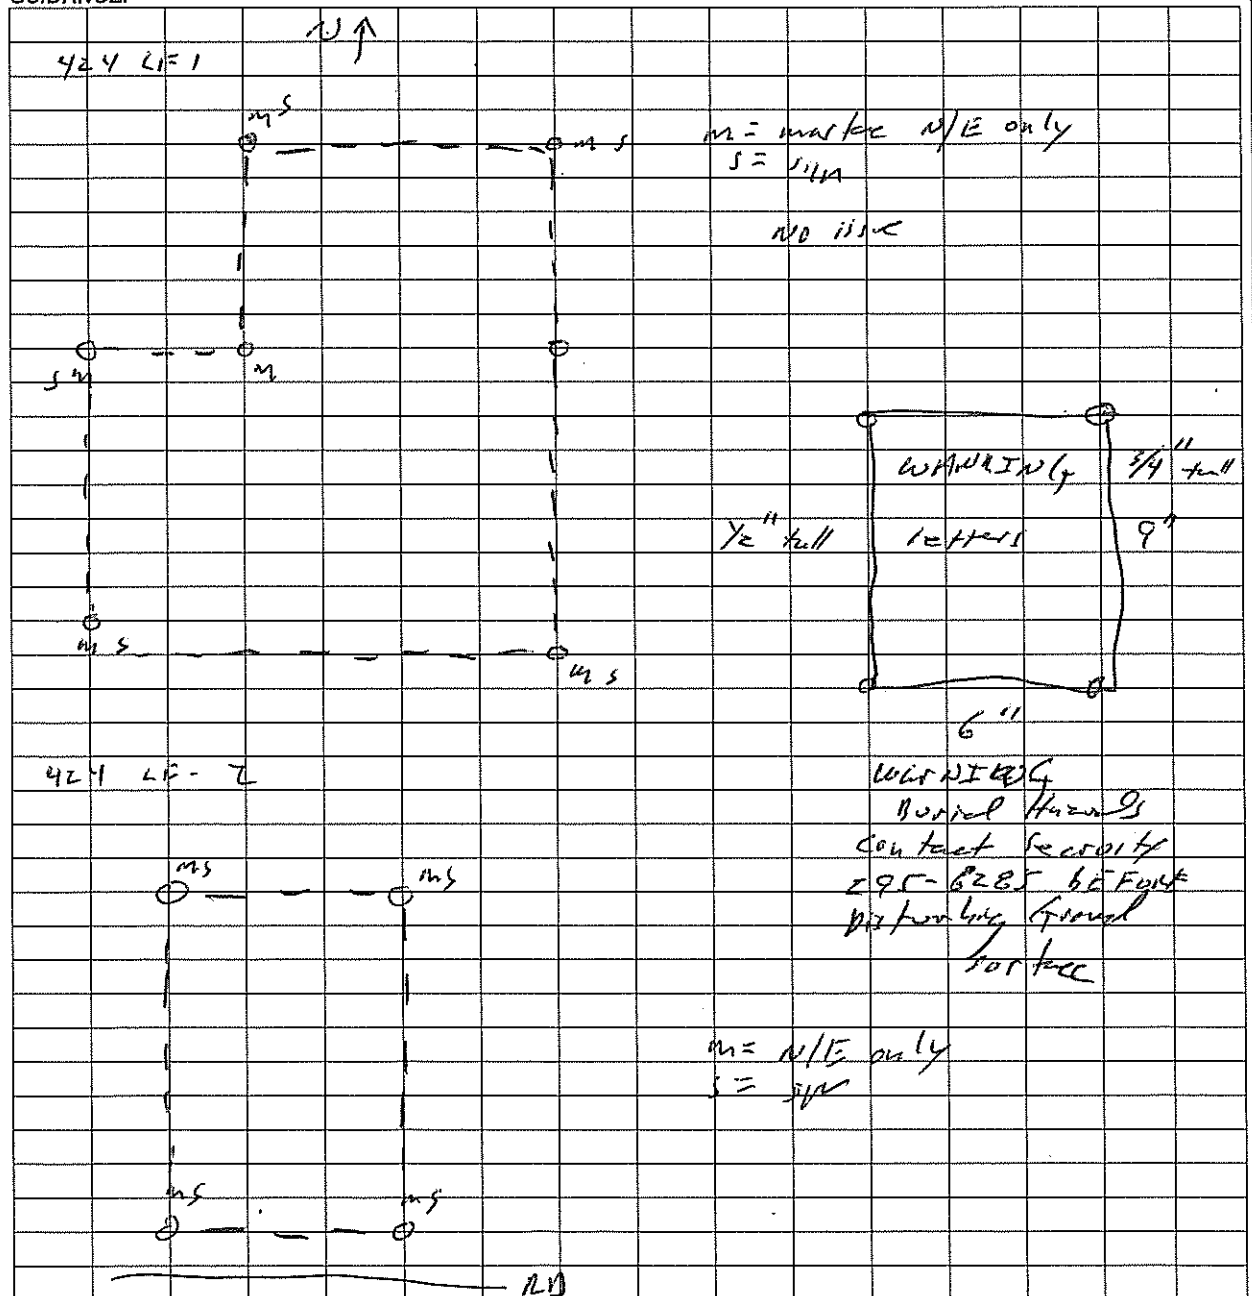 GUIDANCE:
N
424 LF 1
m s
m s
m = marker N/E only
s = sign
NO issue
s m
m
WARNING
3/4" tall
1/2" tall
letters
9"
m s
m s
6"
424 LF - 2
WARNING
Burial Hazards
Contact Security
295-8285 BEFORE
Disturbing Ground
Surface
ms
ms
m = N/E only
s = sign
ms
ms
RD